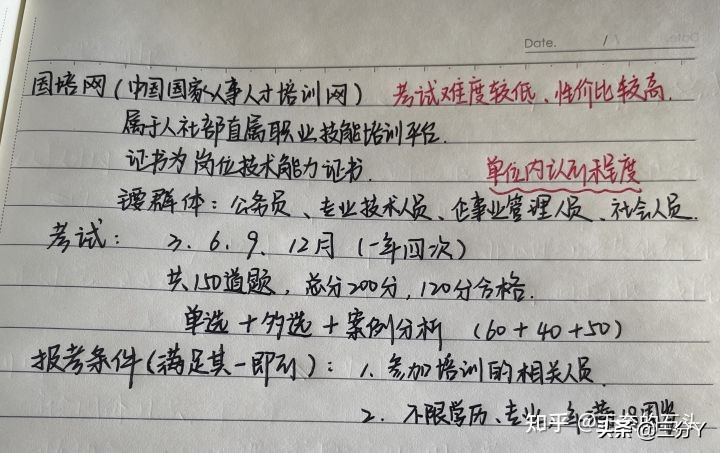 Date. /
国培网(中国国家人事人才培训网) 考试难度较低、性价比较高.
属于人社部直属职业技能培训平台.
证书为岗位技术能力证书. 单位内认可程度
主要群体:公务员、专业技术人员、企事业管理人员、社会人员.
考试: 3、6、9、12月(一年四次)
共150道题,总分200分,120分合格.
单选+多选+案例分析 (60+40+50)
报考条件(满足其一即可):1、参加培训的相关人员.
2、不限学历、专业、年满18周岁
知乎
头条 @三分Y